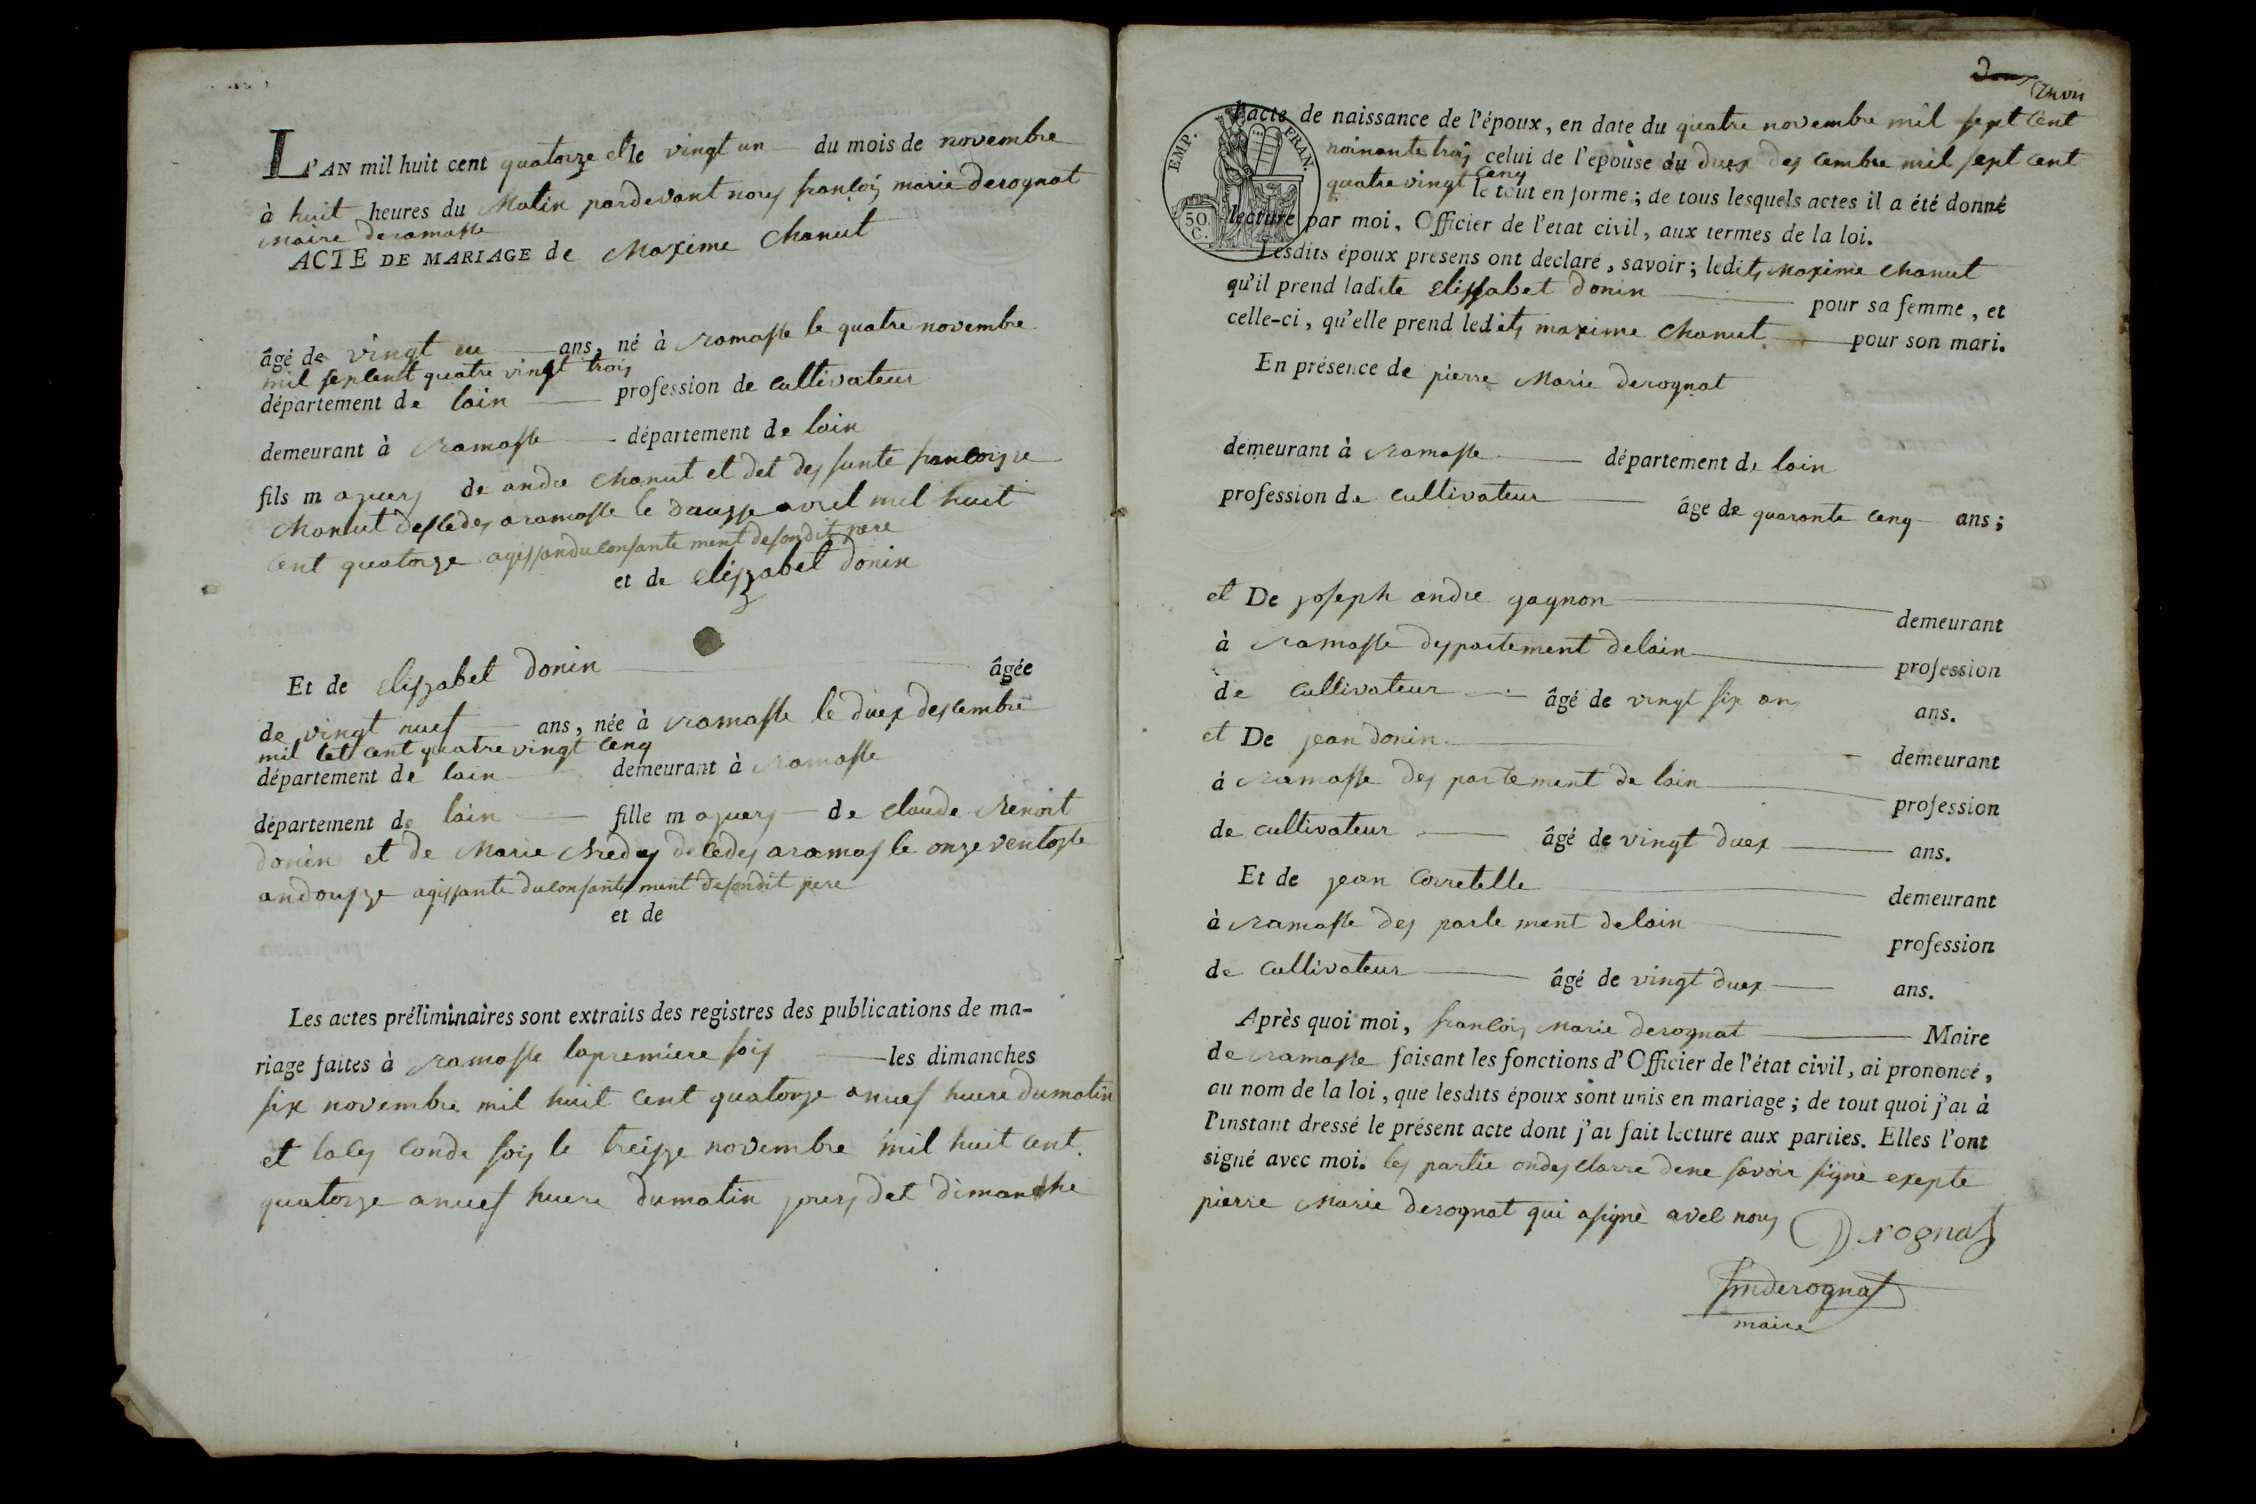 L'AN mil huit cent quatorze et le vingt un du mois de novembre
à huit heures du Matin pardevant nous françois marie derognat
Maire deramasse
ACTE DE MARIAGE de Maxime Chanut
âgé de vingt eu ans, né à ramasse le quatre novembre
mil septcent quatre vingt trois
département de lain profession de cultivateur
demeurant à ramasse département de lain
fils majuers de andre Chanut et det des funte francoisse
Chanut desledes aramasse le dousse avril mil huit
cent quatorze agissanduconsante ment desondit pere
et de eliszabet donin
Et de eliszabet donin âgée
de vingt nuef ans, née à ramasse le duex descembre
mil set cent quatre vingt cenq
département de lain demeurant à ramasse
département de lain fille majuers de claude Renoit
donin et de Marie deledes aramas le onze ventosse
andousze agissante duconsante ment desondit pere
et de
Les actes préliminaires sont extraits des registres des publications de ma-
riage faites à ramasse lapremiere fois les dimanches
six novembre mil huit cent quatorze anuef huere dumatin
et lases conde fois le treisze novembre mil huit cent
quatorze anuef huere dumatin jours det dimanche
trois
L'acte de naissance de l'époux, en date du quatre novembre mil sept cent
EMP. FRAN.
noinante trois celui de l'épouse du duex des cembre mil sept cent
quatre vingt cenq le tout en forme; de tous lesquels actes il a été donné
50. C.
lecture par moi, Officier de l'état civil, aux termes de la loi.
Lesdits époux présens ont déclaré, savoir; ledits Maxime Chanut
qu'il prend ladite elissabet donin pour sa femme, et
celle-ci, qu'elle prend ledits maxime Chanut pour son mari.
En présence de pierre Marie derognat
demeurant à ramasse département de lain
profession de cultivateur âge de quarante cenq ans;
et De joseph andre gagnon demeurant
à ramasse departement delain profession
de cultivateur âgé de vingt six an ans.
et De jean donin demeurant
à ramasse des partement de lain profession
de cultivateur âgé de vingt duex ans.
Et de jean Corretelle demeurant
à ramasse des parte ment delain profession
de cultivateur âgé de vingt duex ans.
Après quoi moi, françois Marie derognat Maire
de ramasse faisant les fonctions d'Officier de l'état civil, ai prononcé,
au nom de la loi, que lesdits époux sont unis en mariage; de tout quoi j'ai à
l'instant dressé le présent acte dont j'ai fait lecture aux parties. Elles l'ont
signé avec moi. les partie ondes clarre dene savoir signe exepte
pierre Marie derognat qui asigné avec nous Derognat
fmderognat
maire